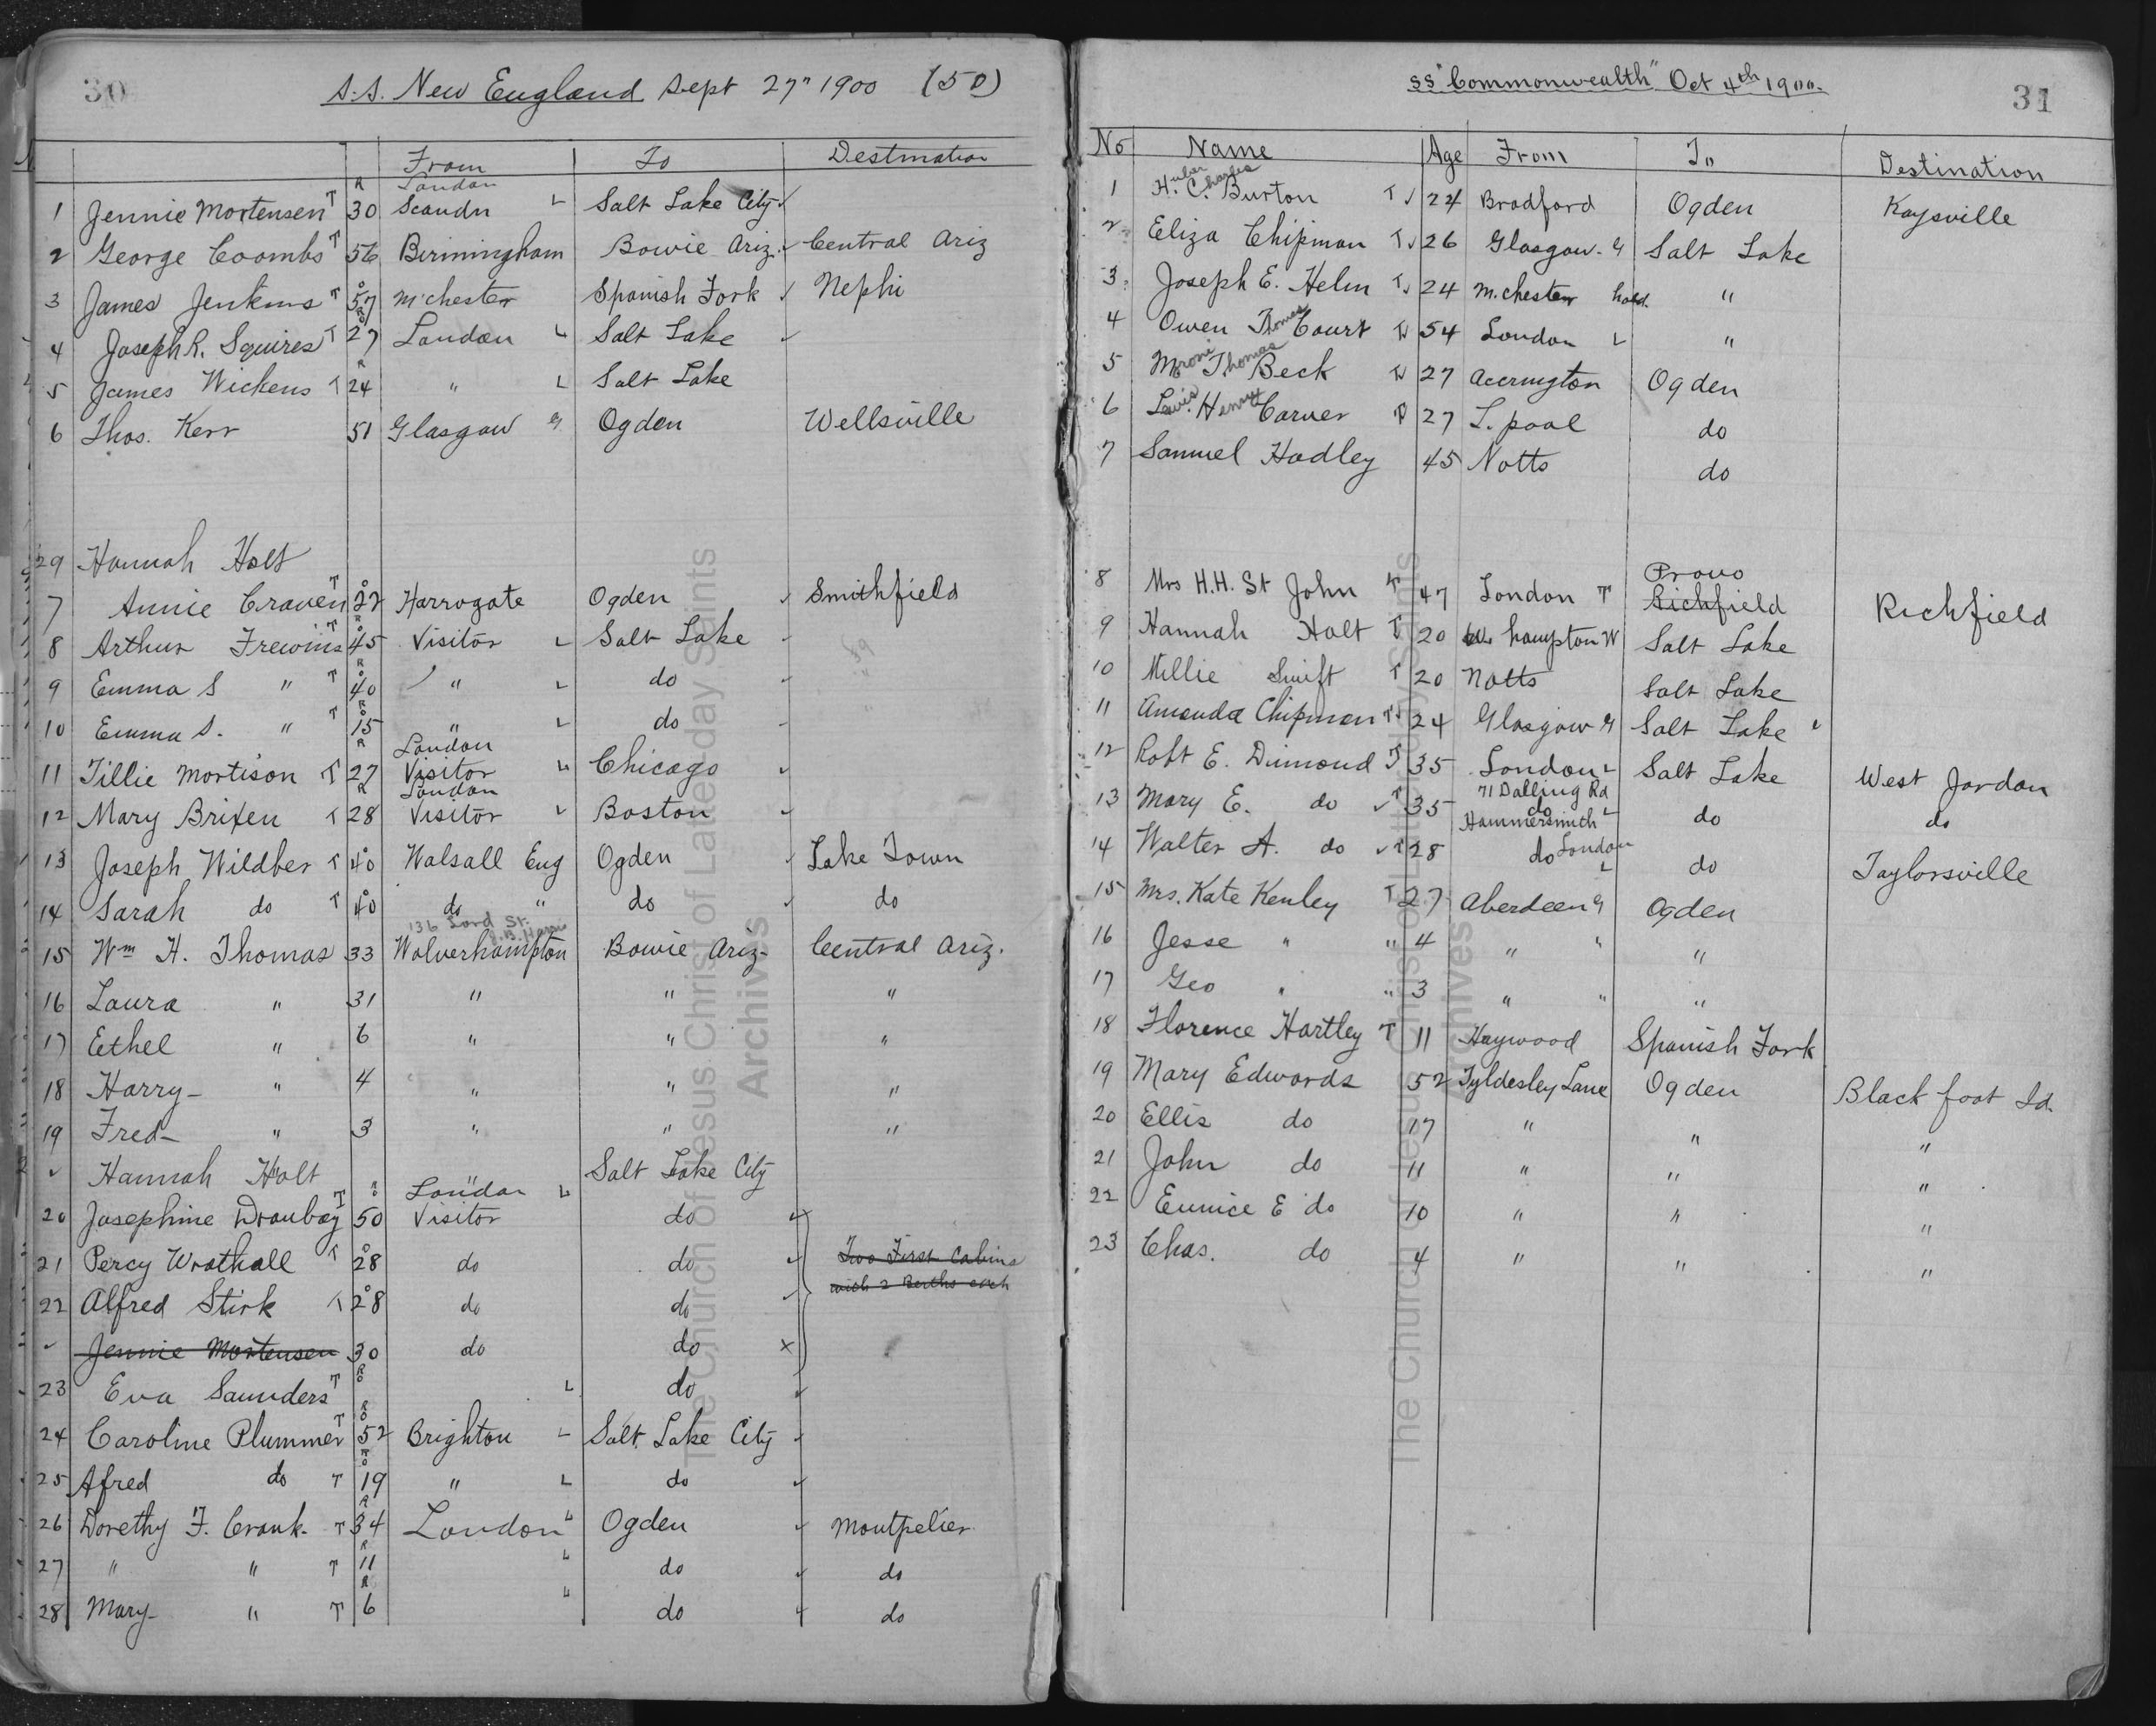 30
S.S. New England Sept 27" 1900 (50)
From To Destination
London
1 Jennie Mortensen T R 30 Scandn L Salt Lake City ✓
2 George Coombs T 56 Birmingham Bowie Ariz. ✓ Central Ariz
3 James Jenkins T O 57 M'chester Spanish Fork ✓ Nephi
4 Joseph R. Squires T R 27 London L Salt Lake ✓
5 James Wickens T R 24 " L Salt Lake
6 Thos. Kerr 51 Glasgow G Ogden Wellsville
29 Hannah Holt
7 Annie Craven T O 22 Harrogate Ogden ✓ Smithfield
8 Arthur Frewin T R O 45 Visitor L Salt Lake ✓
9 Emma S " T R O 40 " L do ✓
10 Emma S. " T R O 15 " L do ✓
London
11 Tillie Mortison T R 27 Visitor L Chicago ✓
London
12 Mary Brixen T R 28 Visitor L Boston ✓
13 Joseph Wildber T O 40 Walsall Eng Ogden ✓ Lake Town
14 Sarah do T O 40 do " do ✓ do
136 Lord St.
15 Wm H. Thomas 33 Wolverhampton Bowie Ariz. Central Ariz.
16 Laura " 31 " " "
17 Ethel " 6 " " "
18 Harry " 4 " " "
19 Fred " 3 " " "
✓ Hannah Holt " Salt Lake City
London L
20 Josephine Draubay T R O 50 Visitor do ✓
21 Percy Wrathall T O 28 do do ✓ Two First Cabins
22 Alfred Stirk T O 28 do do ✓ with 2 Berths each
✓ Jennie Mortensen 30 do do x
23 Eva Saunders T R O L do ✓
24 Caroline Plummer T R O 52 Brighton L Salt Lake City ✓
25 Afred do T R O 19 " L do ✓
26 Dorethy F. Crank T R 34 London L Ogden ✓ Montpelier
27 " " T R 11 L do ✓ do
28 Mary " T R 6 L do ✓ do
The Church of Jesus Christ of Latter-day Saints
Archives
31
SS "Commonwealth" Oct 4th 1900.
No Name Age From To Destination
1 H. C. Charles Burton T ✓ 24 Bradford Ogden Kaysville
2 Eliza Chipman T ✓ 26 Glasgow G Salt Lake
3 Joseph E. Helm T ✓ 24 M.chester "
4 Owen Thomas Court T 54 London L "
5 Moroni Thomas Beck T 27 Accrington Ogden
6 Lewis Henry Carver T 27 L.pool do
7 Samuel Hadley 45 Notts do
Provo
8 Mrs H.H. St John T 47 London T Richfield Richfield
9 Hannah Holt T 20 W. hampton W Salt Lake
10 Nellie Swift T 20 Notts Salt Lake
11 Amanda Chipman T 24 Glasgow G Salt Lake
12 Robt E. Dimond T 35 London L Salt Lake West Jordan
71 Dalling Rd
13 Mary E. do ✓ T 35 do do do
Hammersmith L
14 Walter A. do ✓ T 28 do London L do Taylorsville
15 Mrs. Kate Kenley T 27 Aberdeen G Ogden
16 Jesse " " 4 " " "
17 Geo " " 3 " " "
18 Florence Hartley T 11 Haywood Spanish Fork
19 Mary Edwards 52 Tyldesley Lane Ogden Black foot Id.
20 Ellis do 17 " " "
21 John do 11 " " "
22 Eunice E do 10 " " "
23 Chas. do 4 " " "
The Church of Jesus Christ of Latter-day Saints
Archives